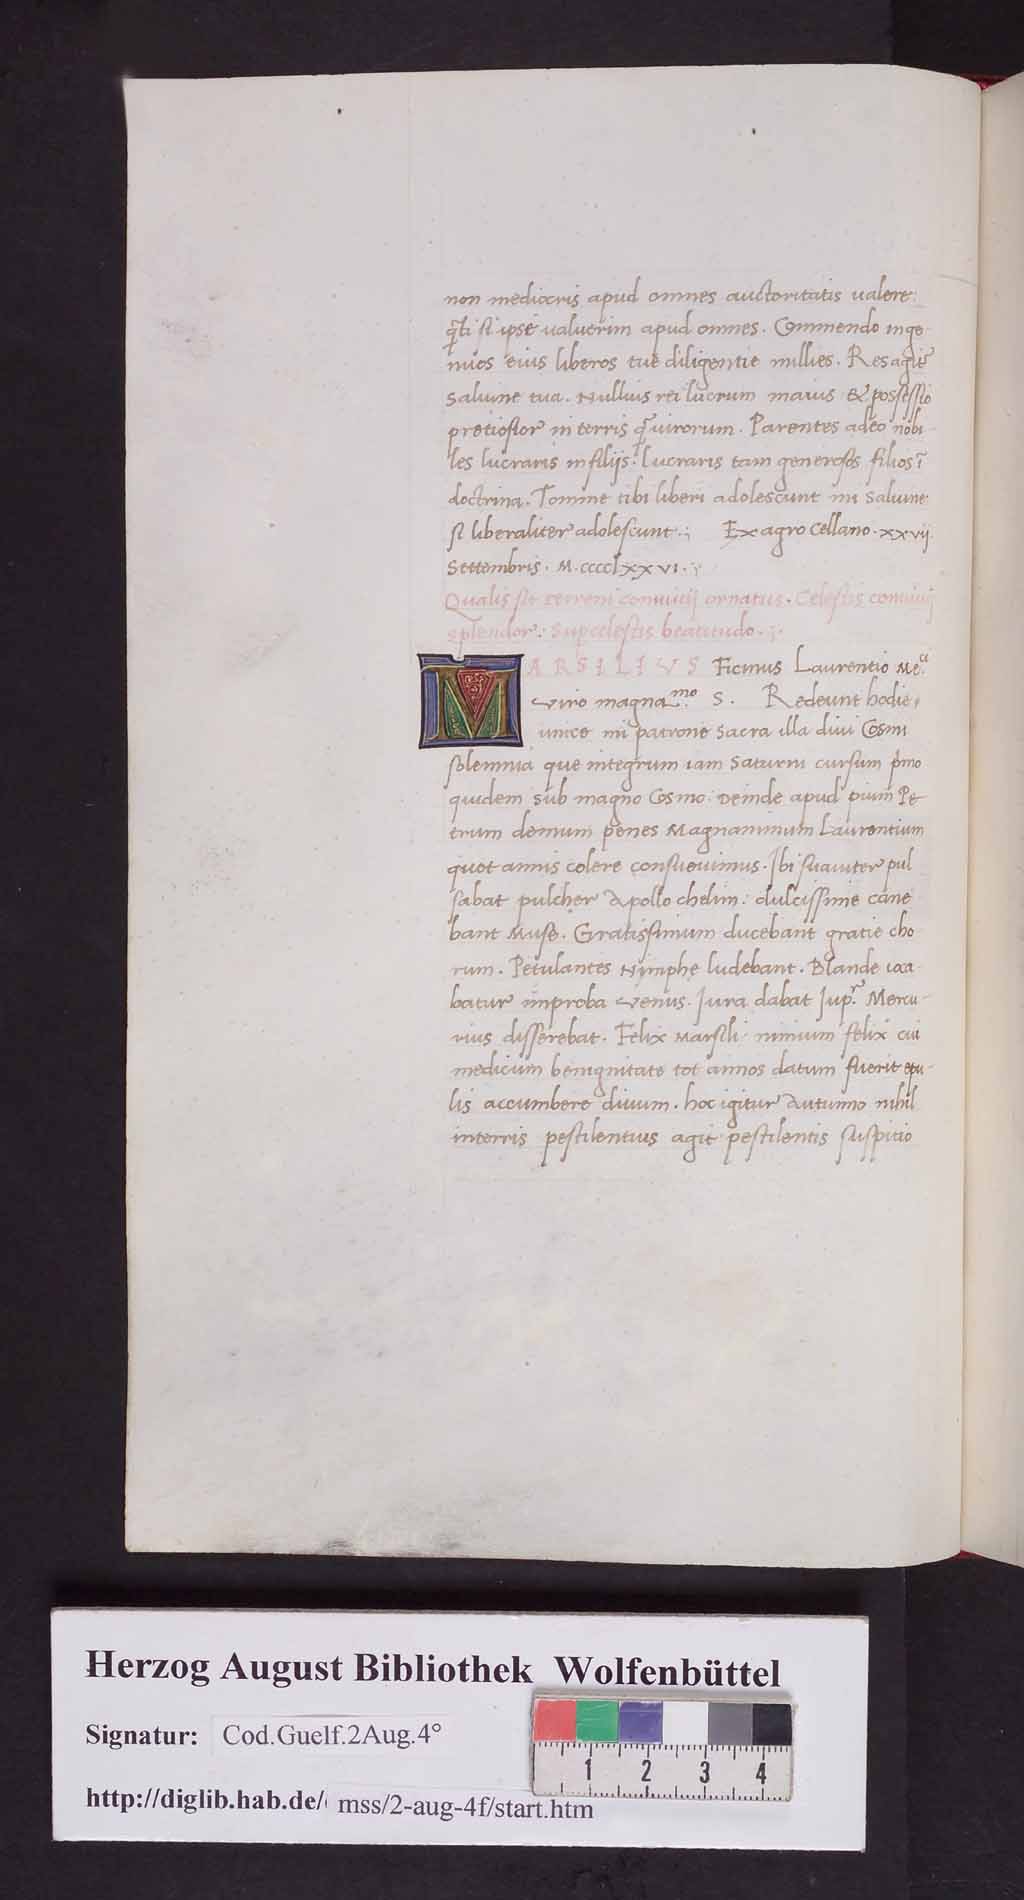 non mediocris apud omnes auctoritatis valere
q̃ti si ipse valuerim apud omnes. Commendo inge
nuos eius liberos tue diligentie millies. Res agit᷑
salvine tua. Nullius rei lucrum maius & possessio
pretiosior in terris q̃ virorum. Parentes adeo nobi
les lucraris in filijs: lucraris tam generosos filios ĩ
doctrina. Tomme tibi liberi adolescunt mi salvine
si liberaliter adolescunt.; Ex agro Cellano. xxvij.
Settembris. M.cccclxxvi.
Qualis sit terreni convivij ornatus. Celestis convivij
splendor. Supcelestis beatitudo.
MARSILIVS Ficinus Laurentio Me.ci
viro magna.mo S. Redeunt hodie
unice mi patrone sacra illa divi Cosmi
solemnia que integrum iam saturni cursum p̃mo
quidem sub magno Cosmo: deinde apud pium Pe
trum demum penes Magnanimum Laurentium
quot annis colere consuevimus. Ibi suaviter pul
sabat pulcher Apollo chelim: dulcissime cane
bant Muse. Gratissimum ducebant gratie cho
rum. Petulantes Nimphe ludebant. Blande ioca
batur improba Venus. Jura dabat Jup.r Mercu-
rius disserebat. Felix Marsili nimium felix cui
medicum benignitate tot annos datum fuerit epu-
lis accumbere divum. hoc igitur Autumno nihil
interris pestilentius agit pestilentis suspitio
Herzog August Bibliothek Wolfenbüttel
Signatur: Cod.Guelf.2Aug.4°
http://diglib.hab.de/ mss/2-aug-4f/start.htm
1 2 3 4